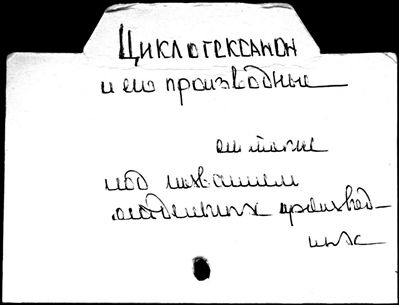 Циклогексанон
и его производные
см также
под названием
отдельных производ-
ных